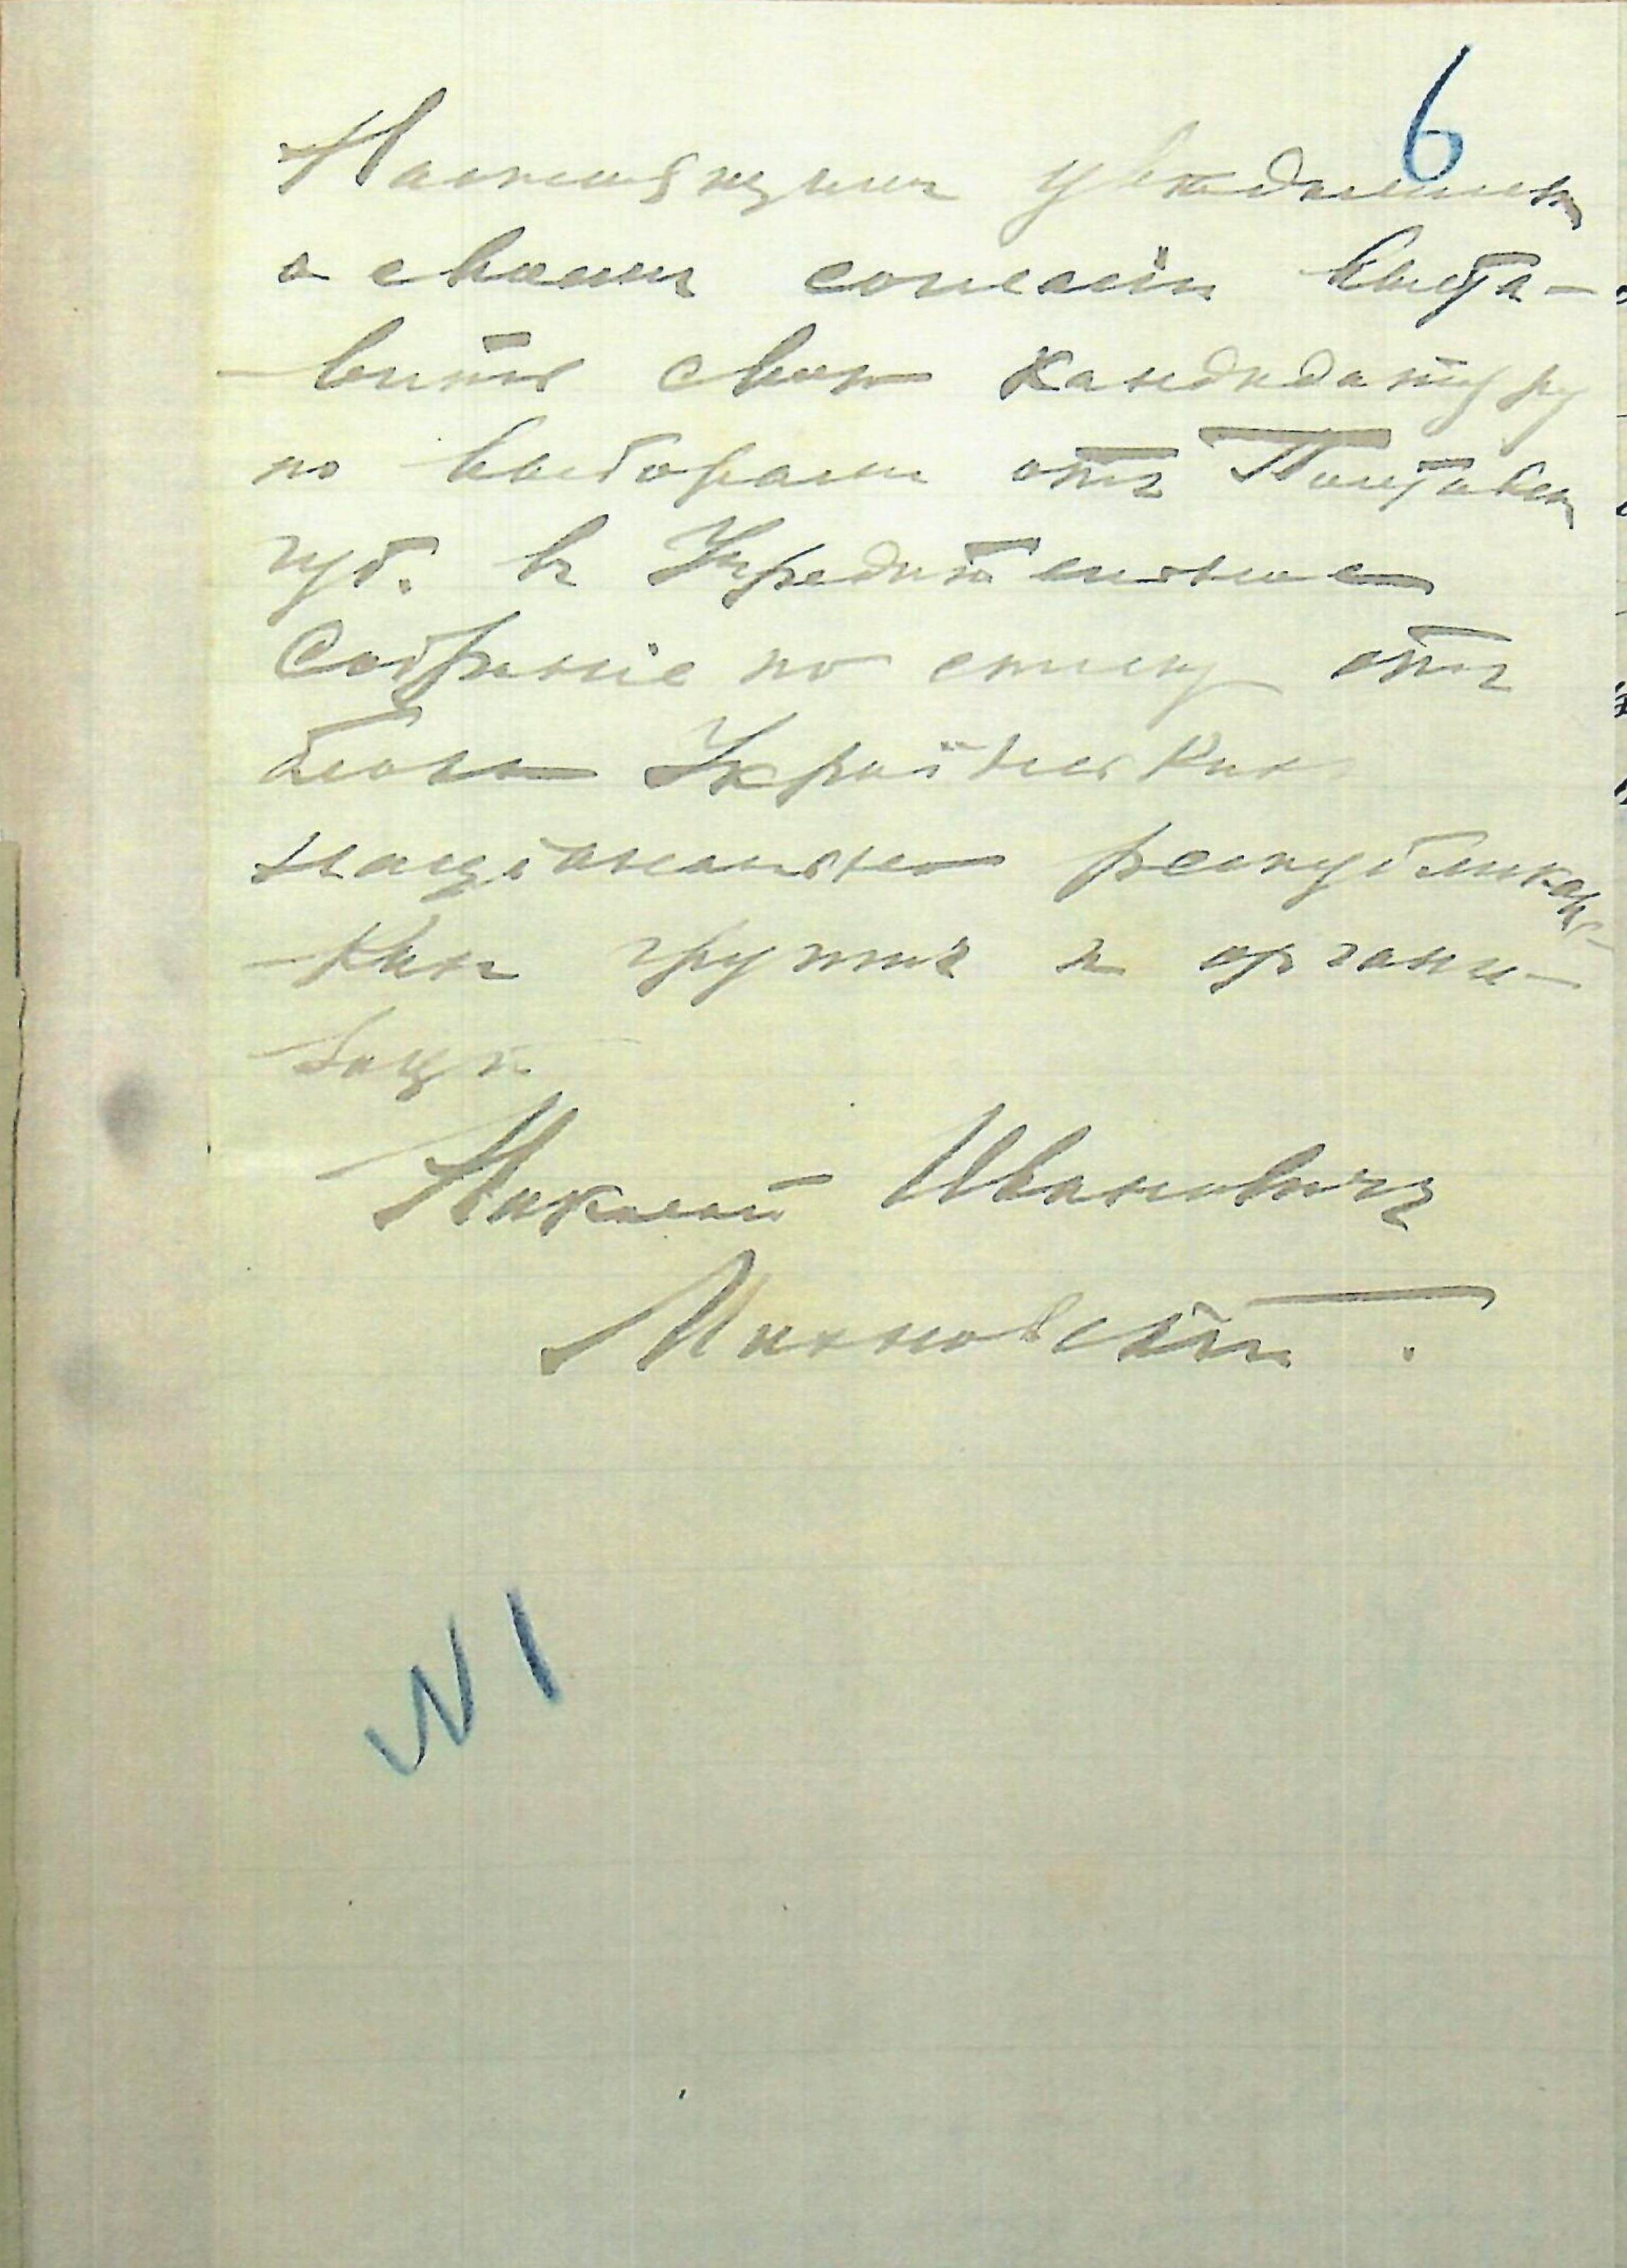 6
Настоящимъ увѣдомляю
о своемъ согласіи выста-
вить свою кандидатуру
по выборамъ отъ Полтавск
губ. въ Учредительное
Собраніе по списку отъ
блока Украінскихъ
національно республикан-
кихъ группъ и органи-
зацій
Николай Ивановичъ
Михновскій.
N 1